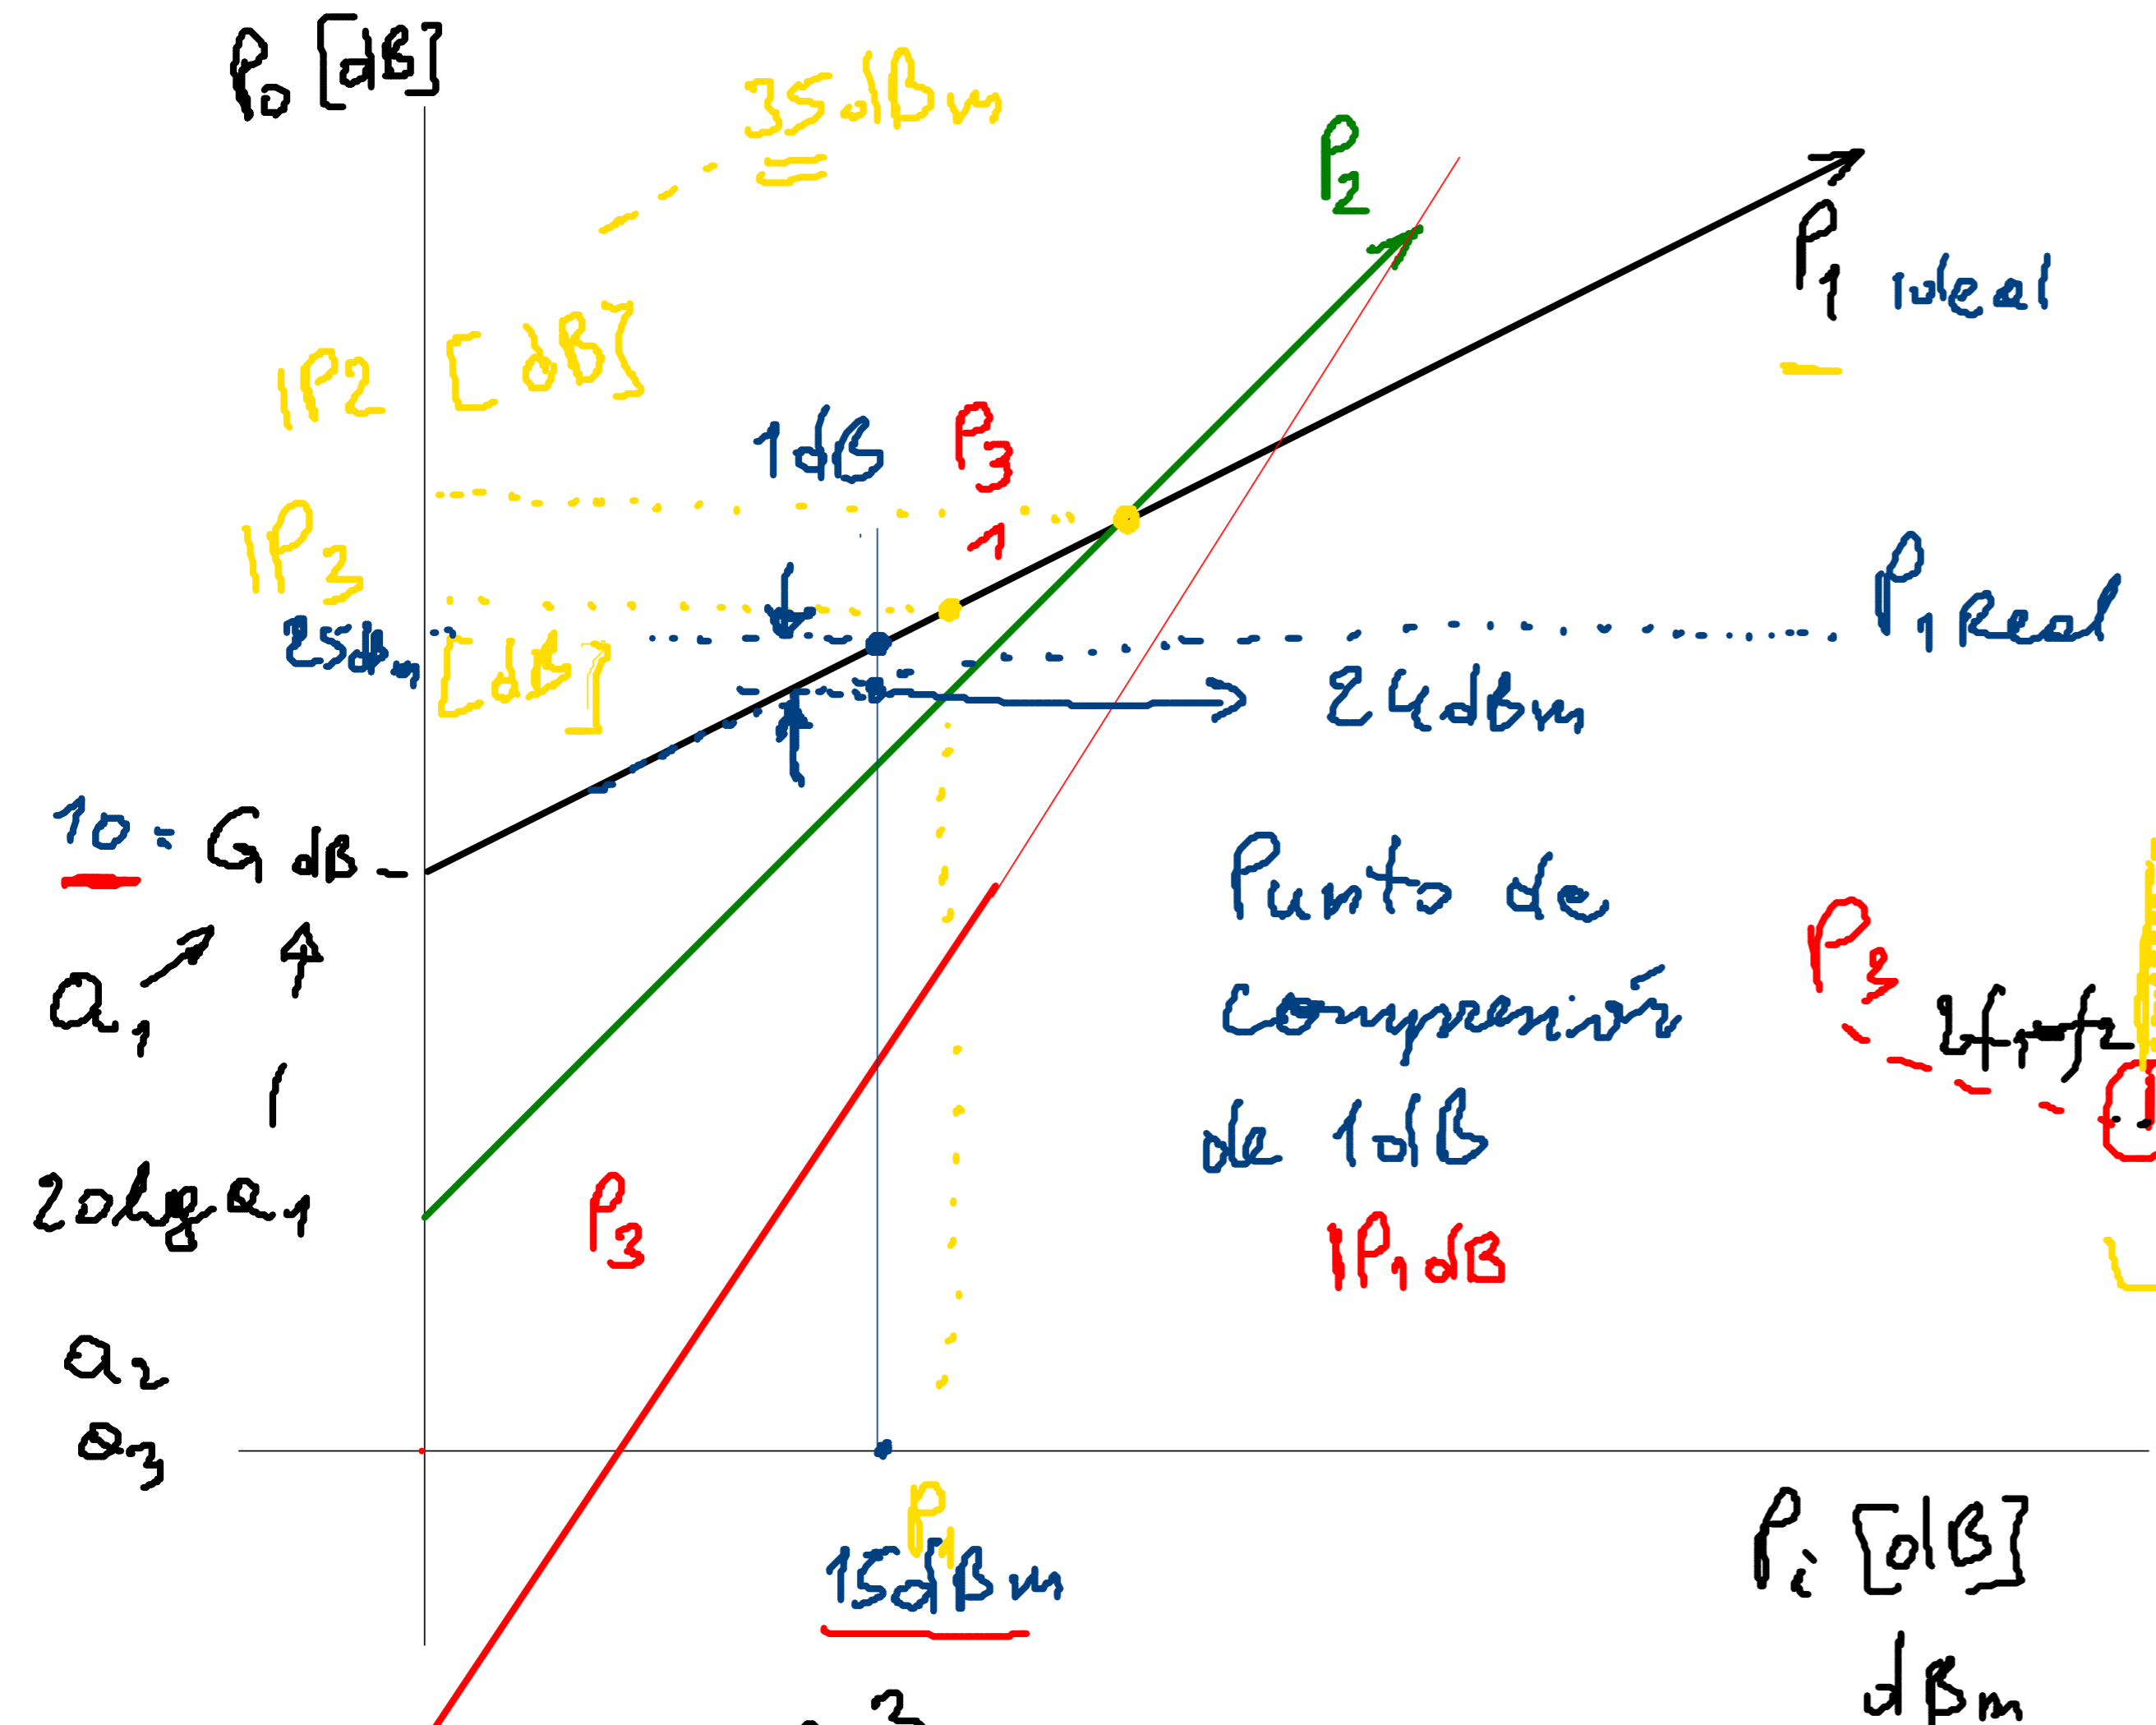 Po [dB]
35dBm
P2
P1 ideal
IP2 [dB]
1dB
P3
1
IP3
[dB]
25dBm
P1 real
24dBm
10 = G dB
a1
20lg a1
a2
a3
Punto de
compresión
de 1dB
IP1dB
P3
P3
P1
15dBm
Pi [dB]
dBm
2